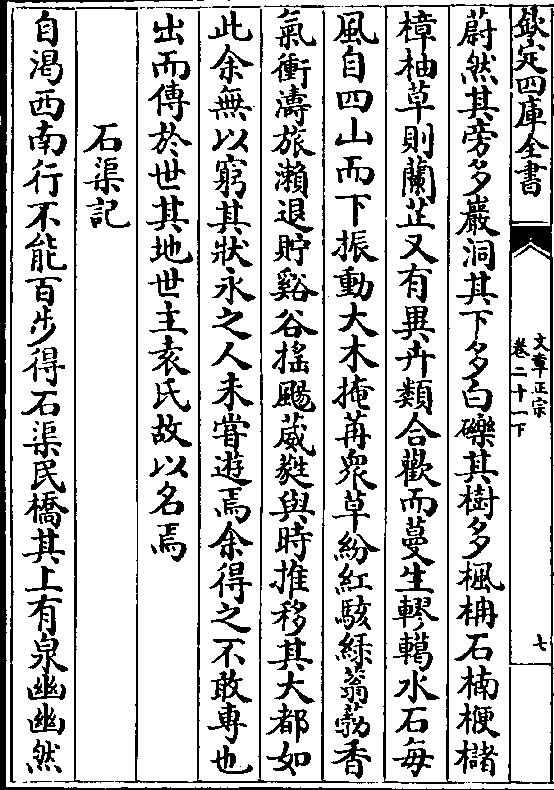 欽定四庫全書
文章正宗
卷二十一下
七
蔚然其旁多巖洞其下多白礫其樹多楓柟石楠楩櫧
樟柚草則蘭芷又有異卉類合歡而蔓生轇轕水石每
風自四山而下振動大木掩苒衆草紛紅駭綠蓊勃香
氣衝濤旅瀨退貯谿谷揺颺葳蕤與時推移其大都如
此余無以窮其狀永之人未嘗遊焉余得之不敢専也
出而傳於世其地世主袁氏故以名焉
石渠記
自渇西南行不能百步得石渠民橋其上有泉幽幽然